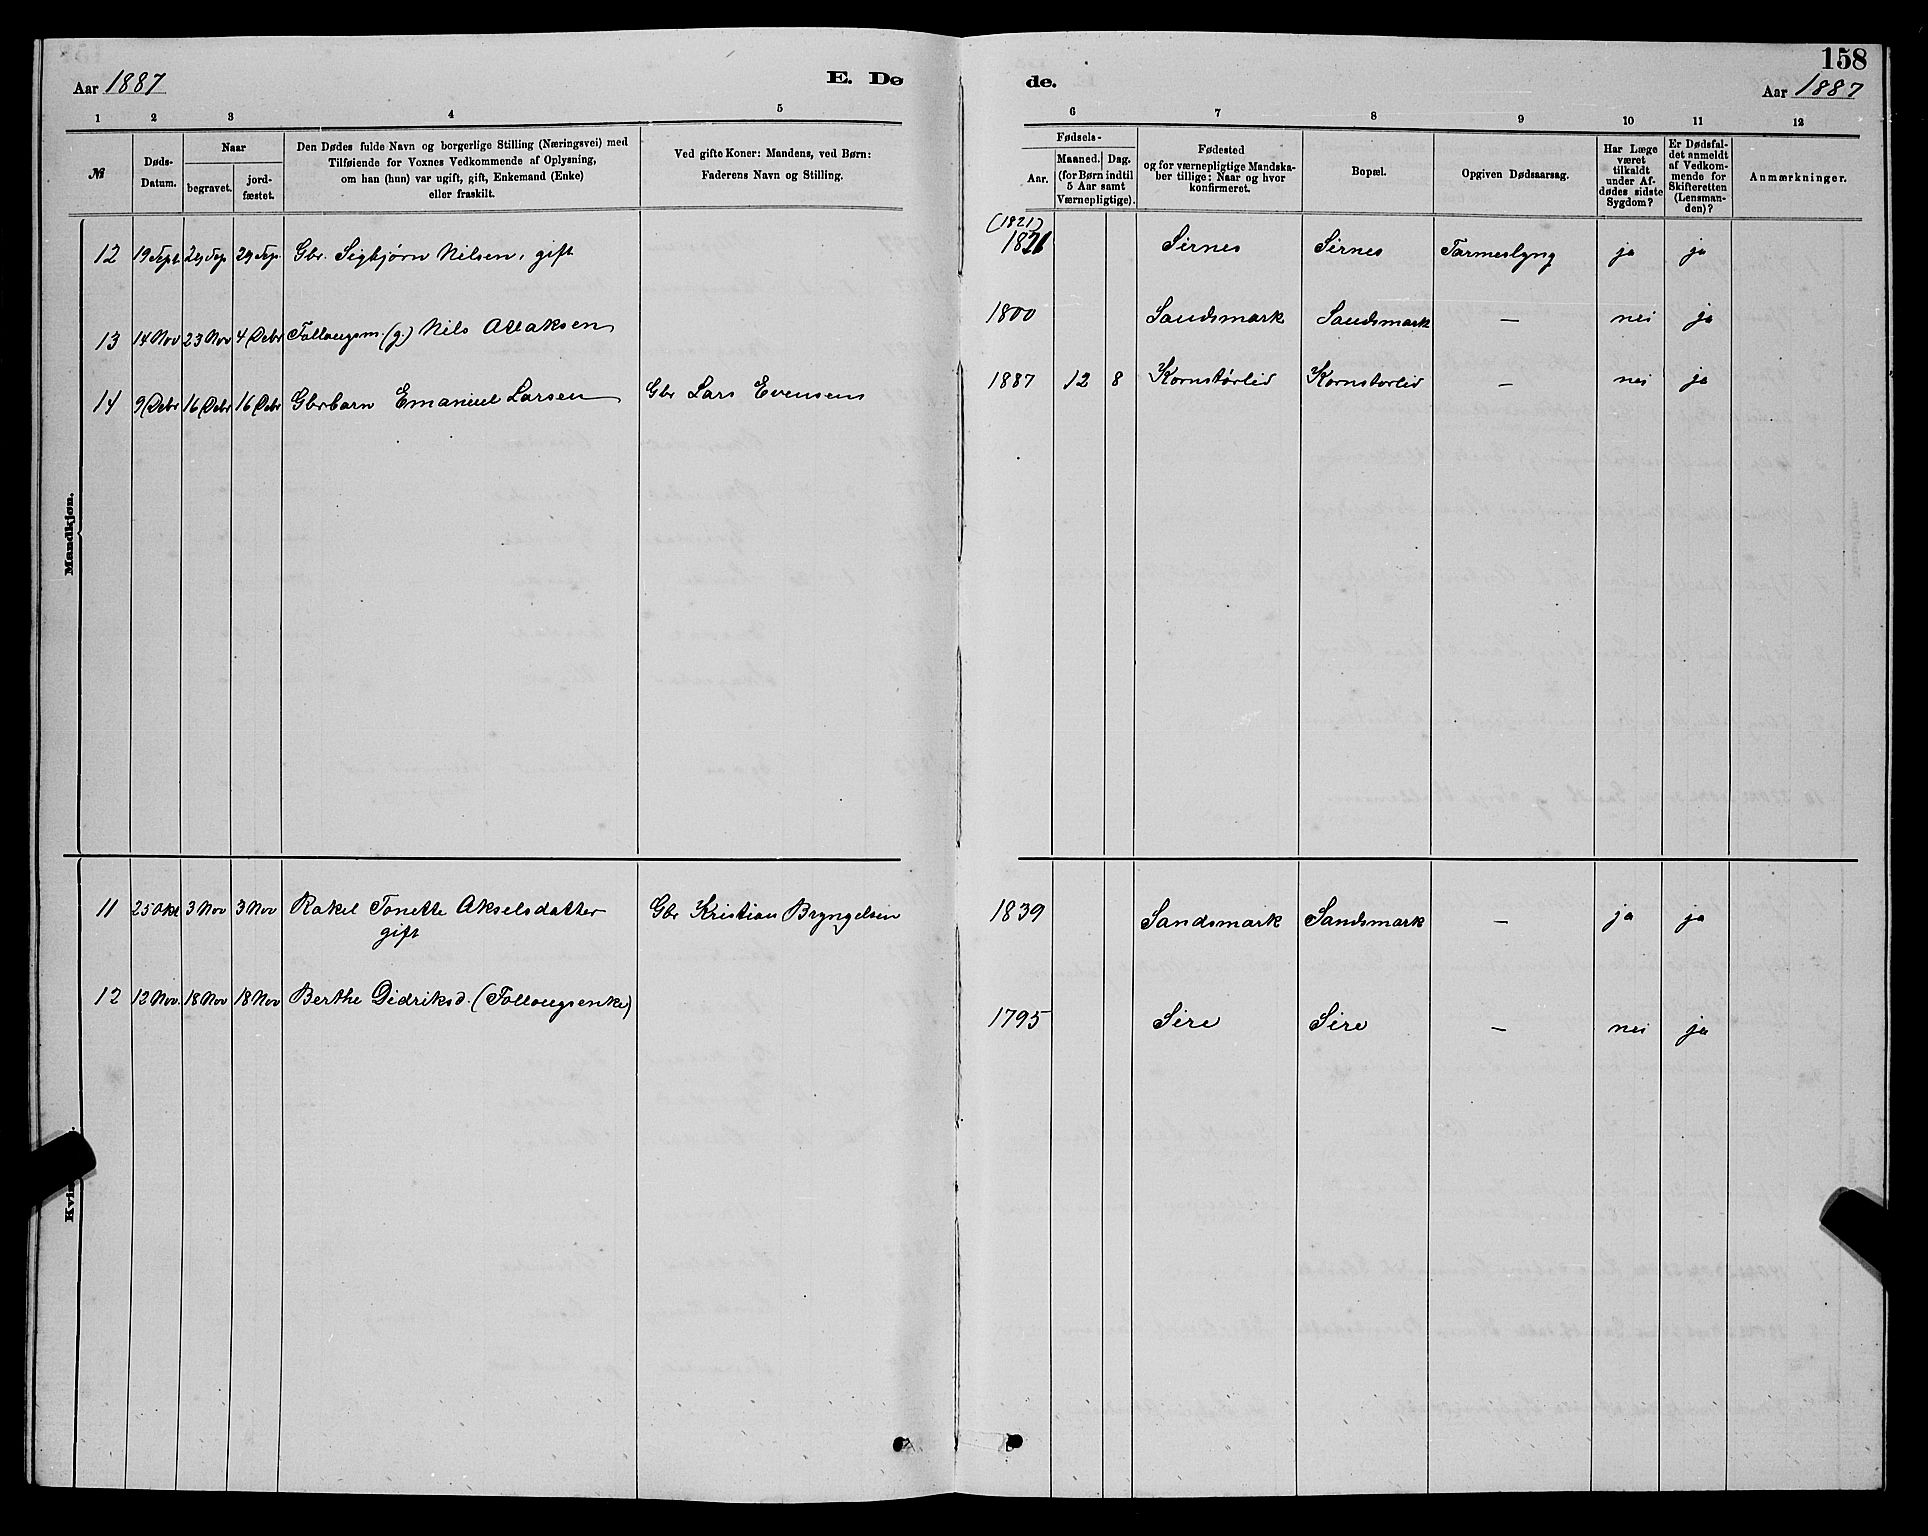 158
Aar 1887 E. Dø de. Aar 1887
1 2 3 4 5 6 7 8 9 10 11 12
№ Døds-Datum. Naar begravet. jord-fæstet.
Den Dødes fulde Navn og borgerlige Stilling (Næringsvei) med
Tilføiende for Voxnes Vedkommende af Oplysning,
om han (hun) var ugift, gift, Enkemand (Enke)
eller fraskilt.
Ved gifte Koner: Mandens, ved Børn:
Faderens Navn og Stilling.
Fødsels-
Aar. Maaned. Dag.
(for Børn indtil
5 Aar samt
Værnepligtige).
Fødested
og for værnepligtige Mandska-
ber tillige: Naar og hvor
konfirmeret.
Bopæl.
Opgiven Dødsaarsag.
Har Læge
været
tilkaldt
under Af-
dødes sidste
Sygdom?
Er Dødsfal-
det anmeldt
af Vedkom-
mende for
Skifteretten
(Lensman-
den)?
Anmærkninger.
Mandkjøn.
(1821)
12 19 Sept. 29 Sep 29 Sep. Gbr. Sigbjørn Nilsen, gift 1821 Sirnes Sirnes Tarmeslyng ja ja
13 14 Nov 23 Nov 4 Debr Follougsm. (g.) Nils Atlaksen 1800 Sandsmark Sandsmark — nei ja
14 9 Debr 16 Debr 16 Debr Gbrbarn Emanuel Larsen Gbr Lars Evensens 1887 12 8 Kornstørlid Kornstorlid — nei ja
11 25 Okt 3 Nov 3 Nov Rakel Tonette Akselsdatter Gbr Kristian Bryngelsen 1839 Sandsmark Sandsmark — ja ja
gift
12 12 Nov. 18 Nov 18 Nov Berthe Didriksd. (Follougsenke) 1795 Sire Sire — nei ja
Kvi